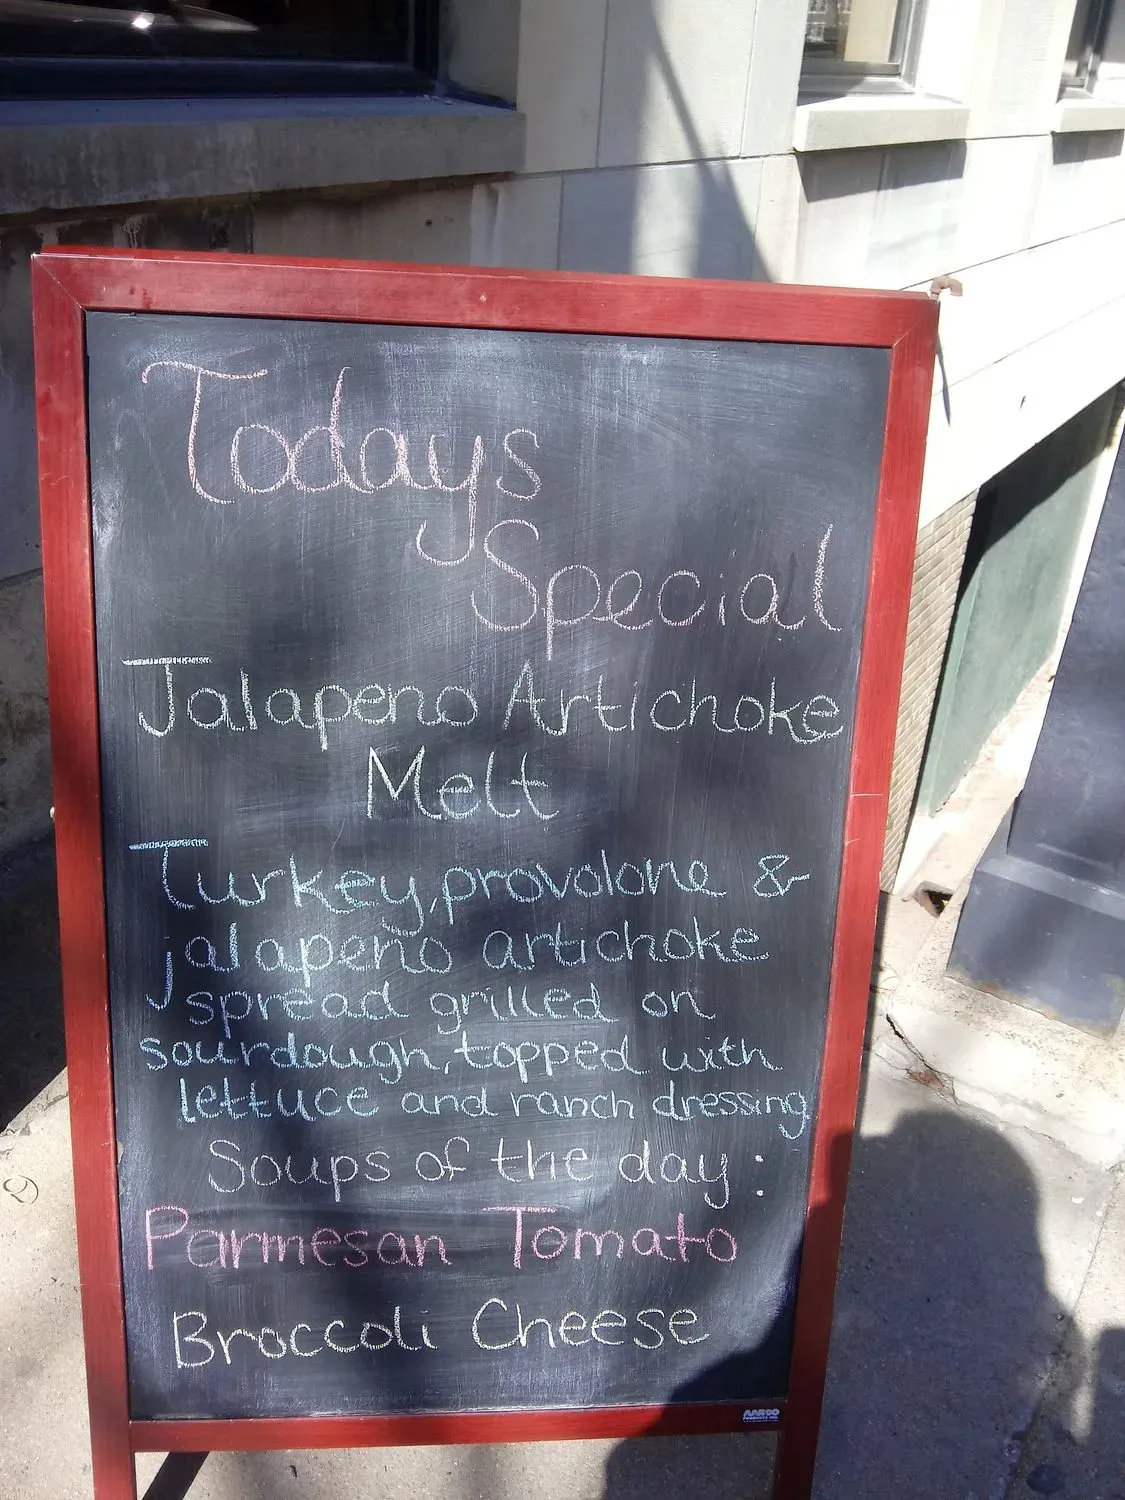 Todays
Special
Jalapeno Artichoke
Melt
Turkey, provolone &
jalapeno artichoke
spread grilled on
sourdough, topped with
lettuce and ranch dressing
Soups of the day:
Parmesan Tomato
Broccoli Cheese
AARCO
PRODUCTS INC.